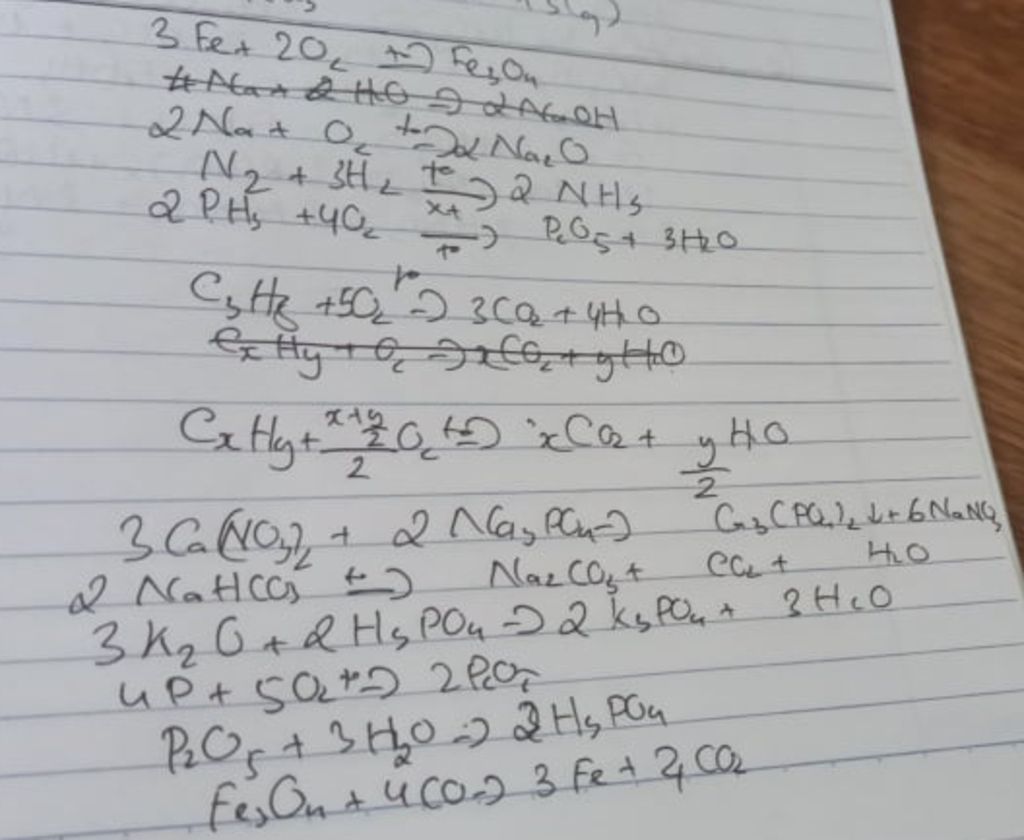 3 Fe + 2O₂ t° → Fe₃O₄
4 Na + 2 H₂O → 2 NaOH
2 Na + O₂ t° → 2 Na₂O
N₂ + 3H₂ t° xt → 2 NH₃
2 PH₃ + 4O₂ t° → P₂O₅ + 3H₂O
C₃H₈ + 5O₂ t° → 3CO₂ + 4H₂O
CxHy + O₂ → xCO₂ + yH₂O
CxHy + (x+y/2)/2 O₂ t° → xCO₂ + y/2 H₂O
3 Ca(NO₃)₂ + 2 Na₃PO₄ → Ca₃(PO₄)₂ ↓ + 6 NaNO₃
2 NaHCO₃ t° → Na₂CO₃ + CO₂ + H₂O
3 K₂O + 2 H₃PO₄ → 2 K₃PO₄ + 3 H₂O
4P + 5O₂ t° → 2P₂O₅
P₂O₅ + 3 H₂O → 2 H₃PO₄
Fe₃O₄ + 4CO → 3 Fe + 4CO₂